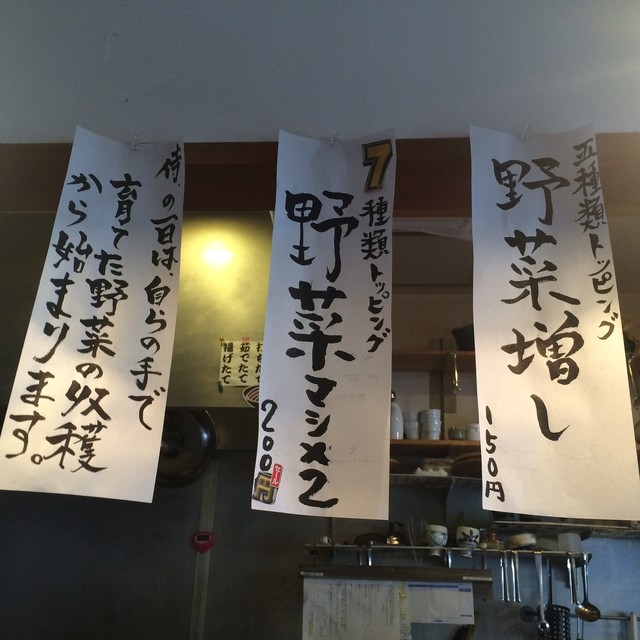 五種類トッピング
野菜増し
150円
7種類トッピング
野菜マシ×2
200円
侍の一日は自らの手で
育てた野菜の収穫
から始まります。
茹でたて
揚げたて